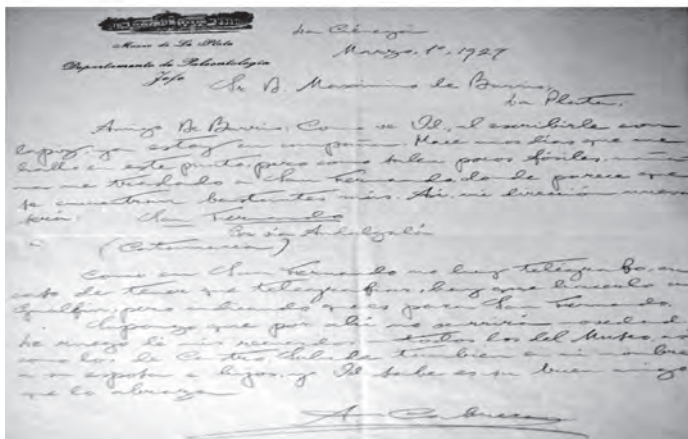 La Ciénaga
Museo de La Plata
Marzo, 1º, 1927
Departamento de Paleontología
Jefe
Sr. D. Maximino de Barrio.
La Plata.
Amigo De Barrio: Como ve Vd., al escribirle con
lapiz, ya estoy en campaña. Hace unos dias que me
hallo en este punto, pero como salen pocos fósiles,
me traslado a San Fernando, donde parece que
se encuentran bastantes más. Asi, mi dirección nueva
será: San Fernando
Por via Andalgalá
(Catamarca)
Como en San Fernando no hay telégrafo, en
caso de tener que telegrafiar, hay que hacerlo a
pero indicando que es para San Fernando.
Supongo que por ahi no
Le ruego dé mis recuerdos a todos los del Museo,
como los de Vd. tambien en mi nombre
a su esposa e hijos, y Vd. sabe es su buen amigo
que lo abraza
A. Cabrera